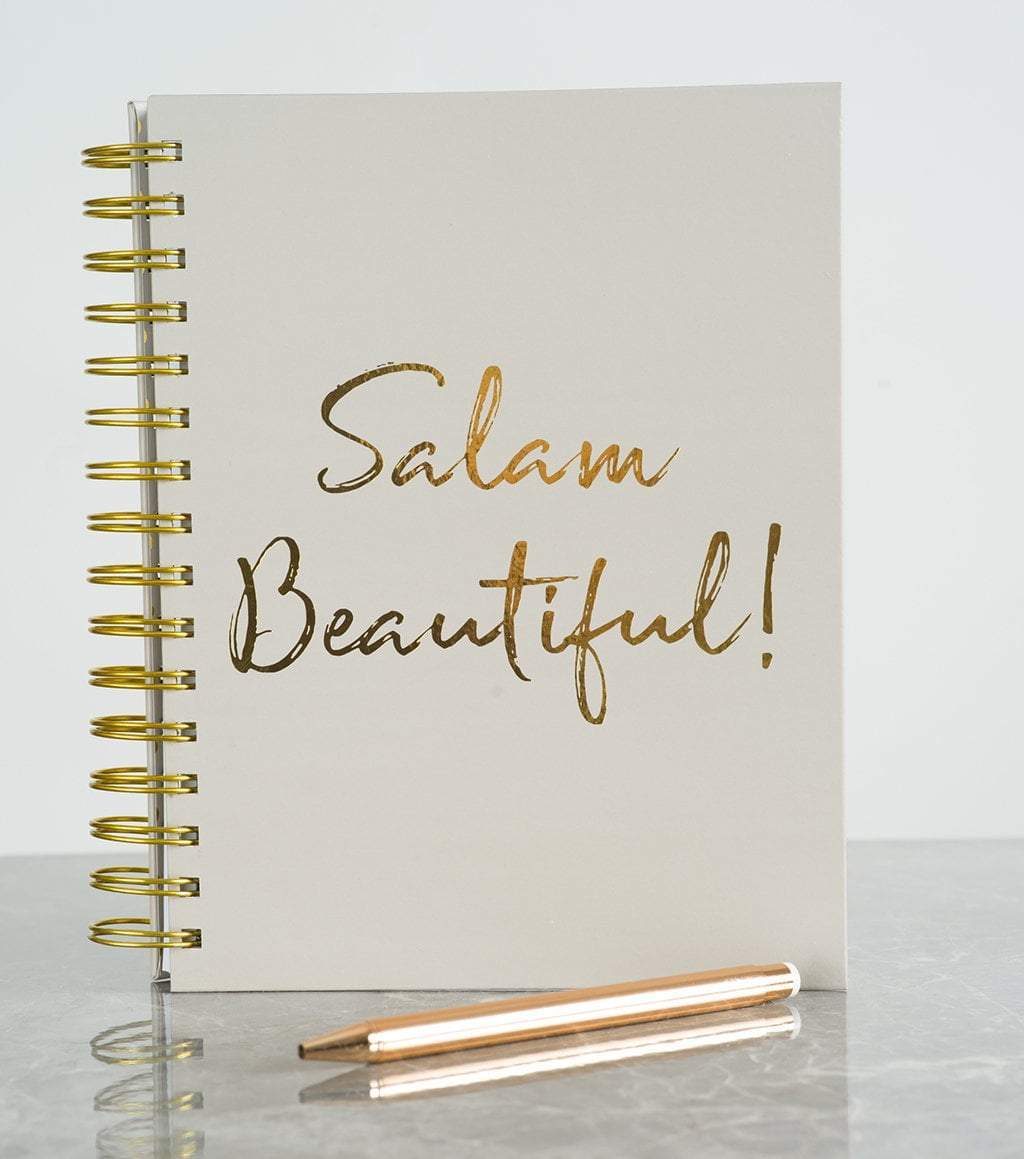 Salam
Beautiful!